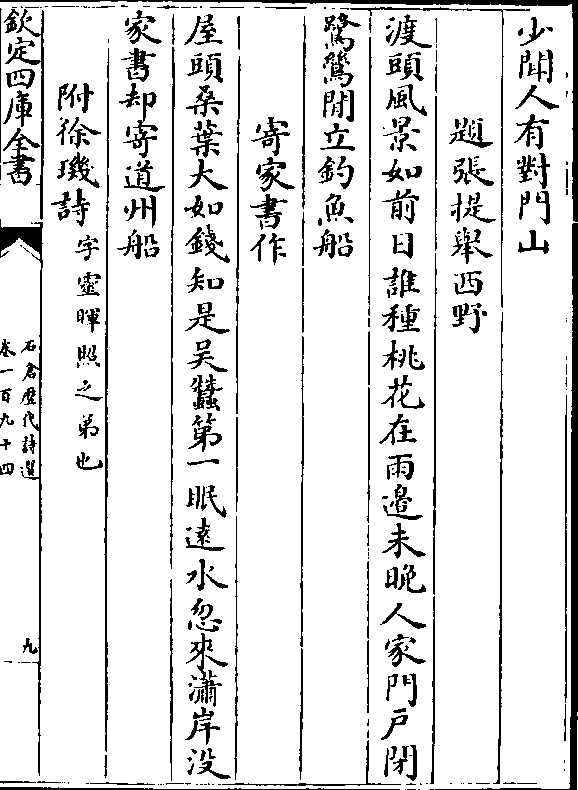 少閒人有對門山
題張提舉西野
渡頭風景如前日誰種桃花在雨邉未晩人家門戸閉
鷺鷥閒立釣魚船
寄家書作
屋頭桑葉大如錢知是吴蠶第一眠逺水忽來瀟岸没
家書却寄道州船
附徐璣詩字靈暉照之弟也
欽定四庫全書
石倉歴代詩選
卷一百九十四
九